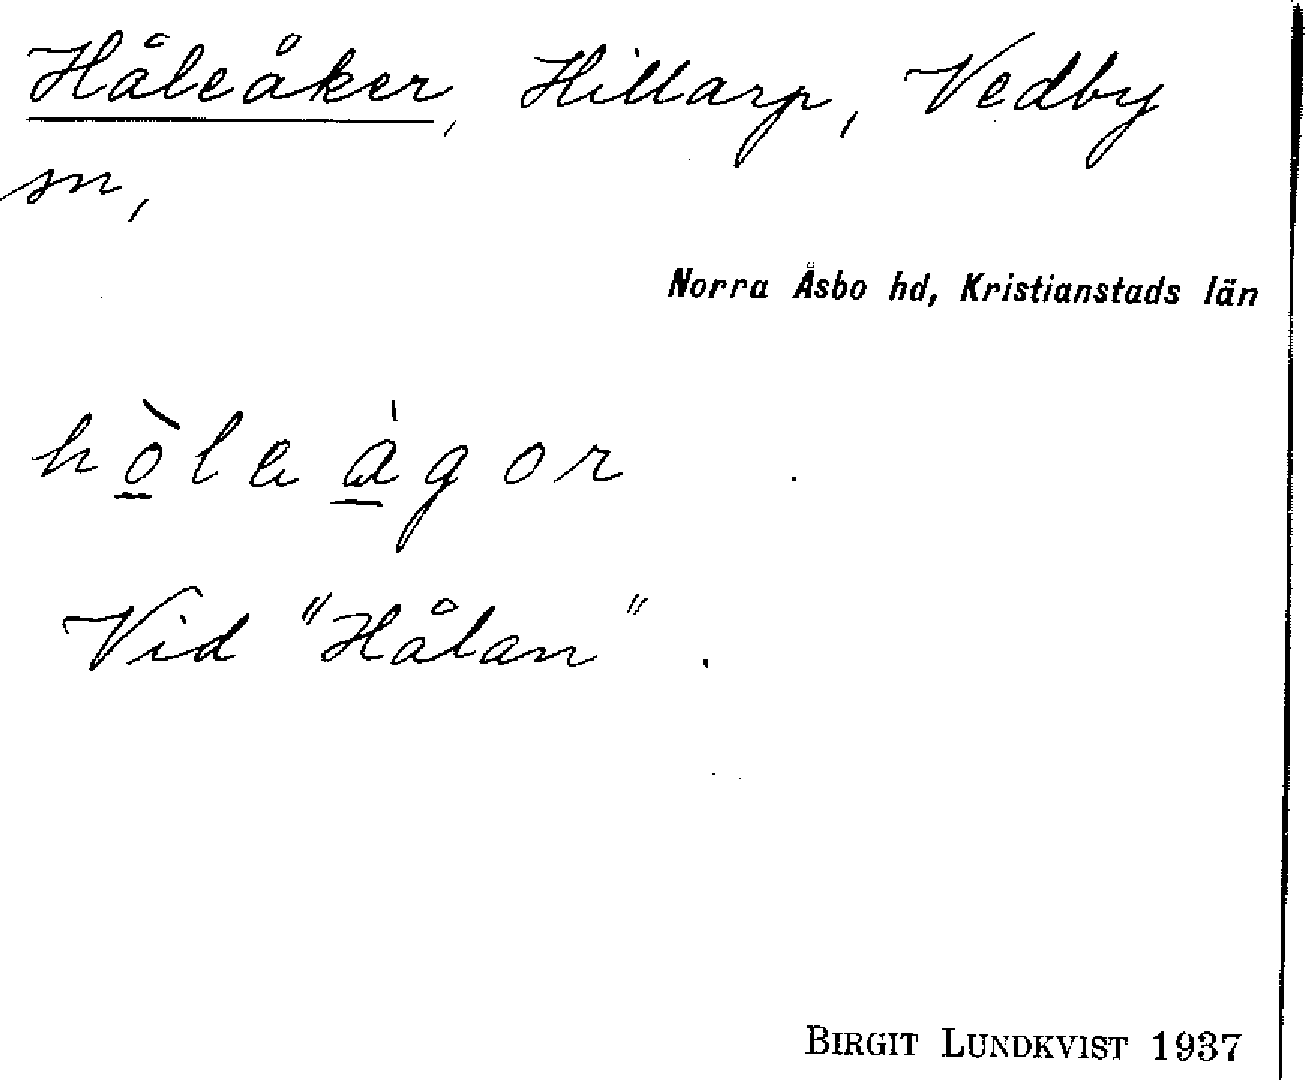 Håleåker, Hillarp, Vedby
sn,
Norra Åsbo hd, Kristianstads län
hò̱leà̱gor
Vid "Hålan".
BIRGIT LUNDKVIST 1937